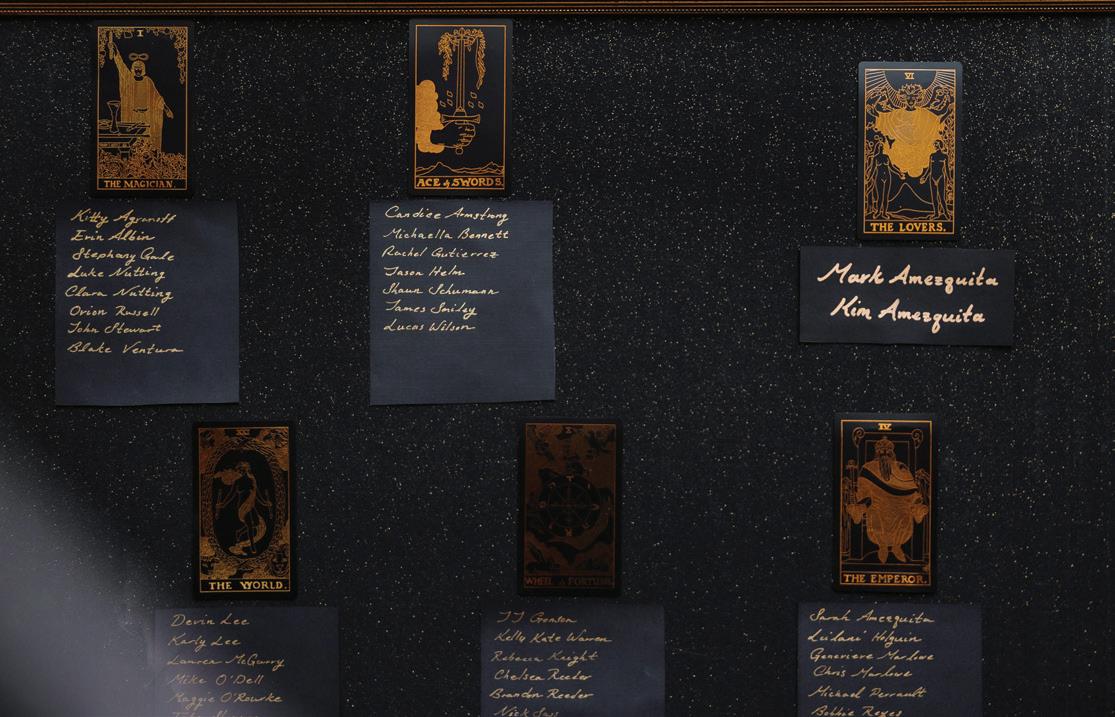 I
THE MAGICIAN.
Kitty Agranoff
Erin Albin
Stephany Gale
Luke Nutting
Clara Nutting
Orion Russell
John Stewart
Blake Ventura
ACE of SWORDS.
Candice Armstrong
Michaella Bennett
Rachel Gutierrez
Jason Helm
Shaun Schumann
James Smiley
Lucas Wilson
VI
THE LOVERS.
Mark Amezquita
Kim Amezquita
XXI
THE WORLD.
Devin Lee
Karly Lee
Lauren McGurry
Mike O'Dell
Maggie O'Rourke
X
WHEEL of FORTUNE.
JJ
Kelly Kate Warren
Rebecca Knight
Chelsea Reeder
Brandon Reeder
Nick Sass
IV
THE EMPEROR.
Sarah Amezquita
Leilani Holguin
Genevieve Marlowe
Chris Marlowe
Michael Perrault
Bobbie Reyes